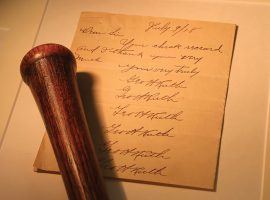 July 9/18
Dear Sir
Your check received
and I thank you very
much
Your very truly
Geo H Ruth
G
Geo H Ruth
Geo H Ruth
Geo H Ruth
Geo H Ruth
Geo H Ruth